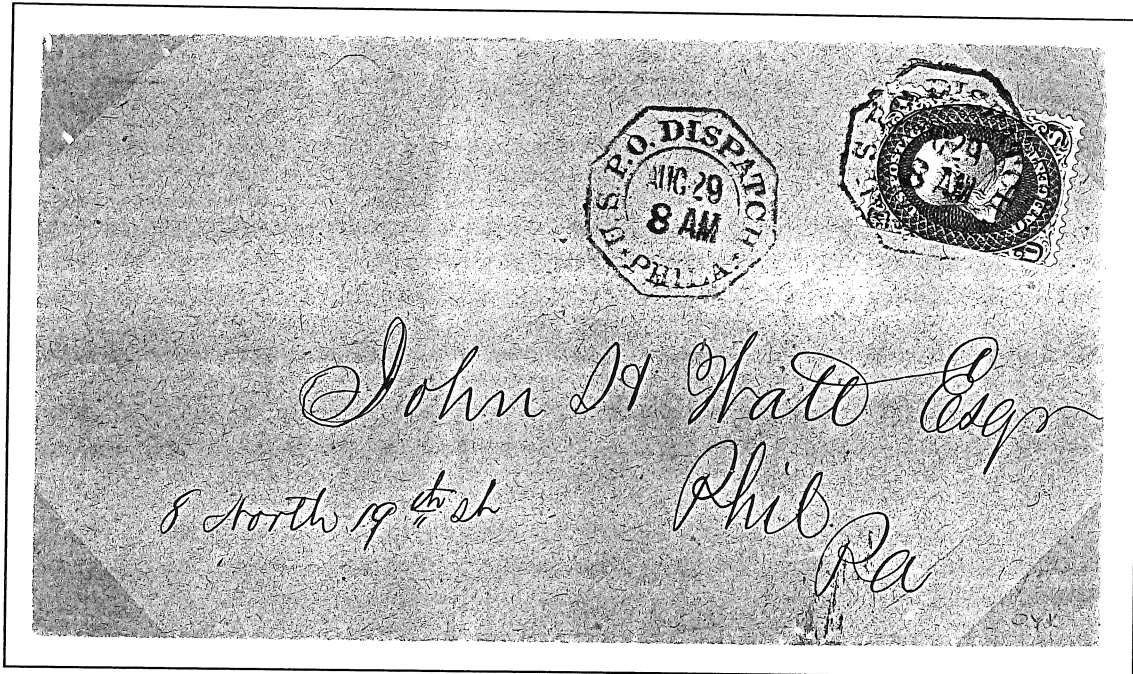 U.S.P.O. DISPATCH
AUG 29
8 AM
★ PHILA ★
29
8 AM
John H Watt Esqr
8 North 19th St
Phil.
Pa